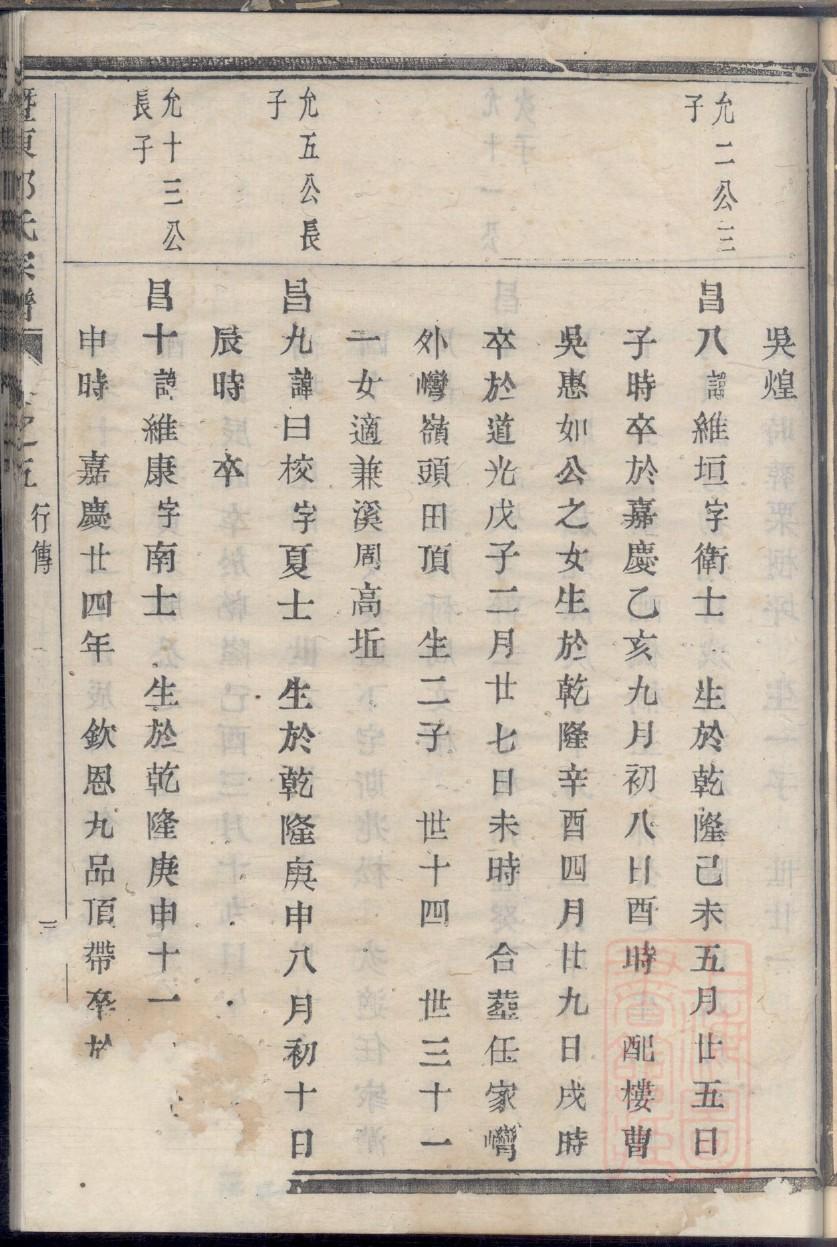 吳煌
允二公三
子
昌八諱維垣字衛士 生於乾隆己未五月廿五日
子時卒於嘉慶乙亥九月初八日酉時 配樓曹
吳惠如公之女生於乾隆辛酉四月廿九日戌時
卒於道光戊子二月廿七日未時 合塟任家灣
外灣嶺頭田頂 生二子 世十四 世三十一
一女適兼溪周高坵
允五公長
子
昌九諱曰校字夏士 生於乾隆庚申八月初十日
辰時 卒
允十三公
長子
昌十諱維康字南士 生於乾隆庚申十一
申時 嘉慶廿四年 欽恩九品頂帶卒於
暨東 氏宗譜 卷之五 行傳 三